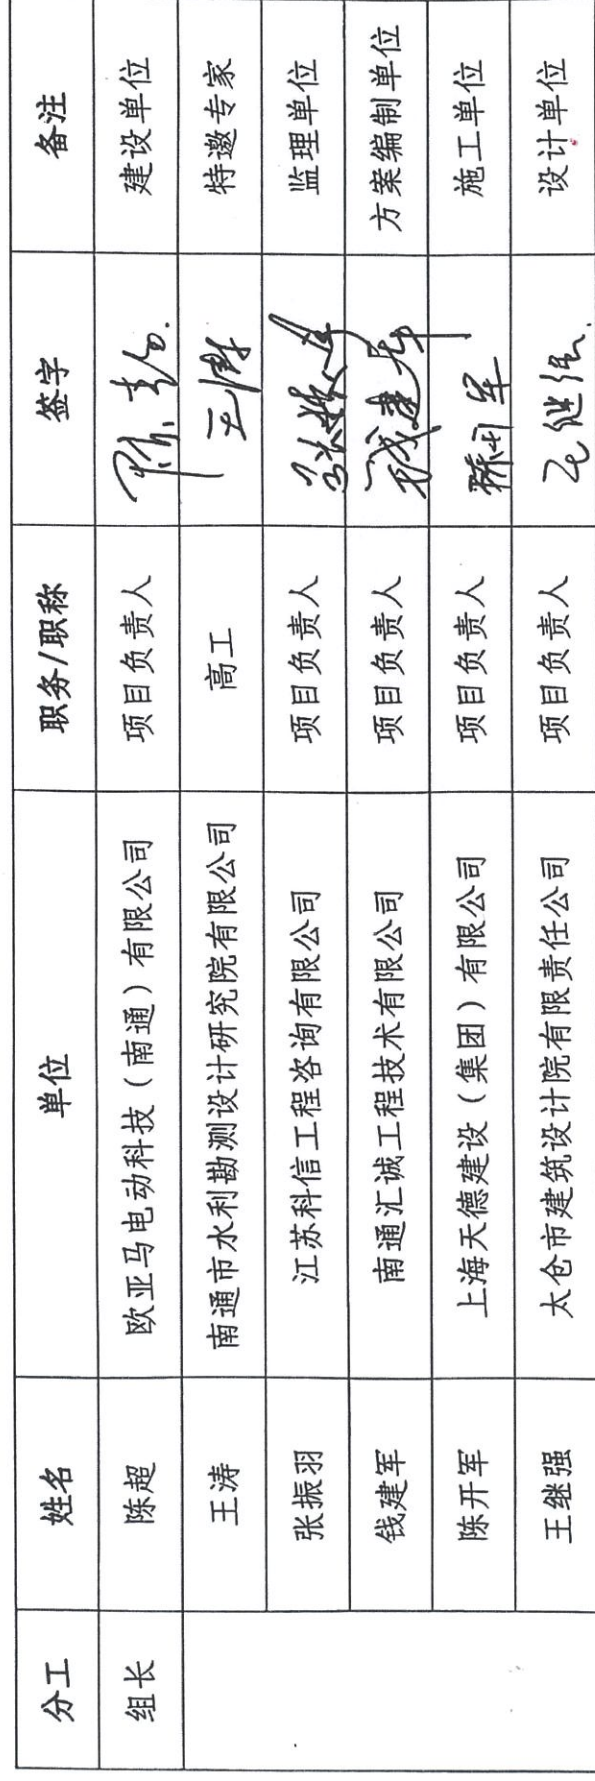 分工 姓名 单位 职务/职称 签字 备注
组长 陈超 欧亚马电动科技（南通）有限公司 项目负责人 陈超 建设单位
王涛 南通市水利勘测设计研究院有限公司 高工 王涛 特邀专家
张振羽 江苏科信工程咨询有限公司 项目负责人 张振羽 监理单位
钱建军 南通汇诚工程技术有限公司 项目负责人 钱建军 方案编制单位
陈开军 上海天德建设（集团）有限公司 项目负责人 陈开军 施工单位
王继强 太仓市建筑设计院有限责任公司 项目负责人 王继强 设计单位